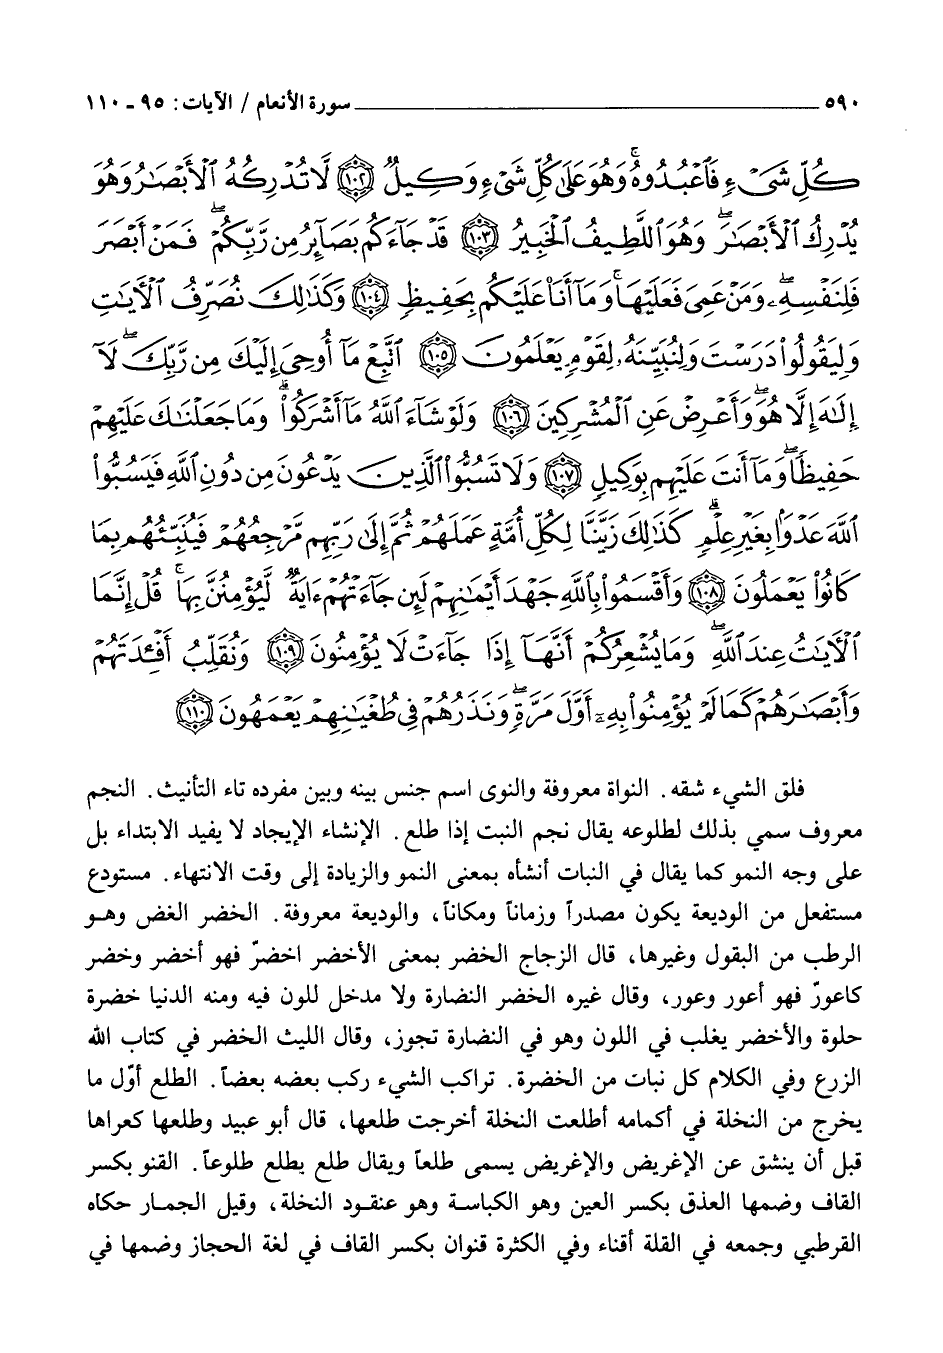 ٥٩٠ سورة الأنعام / الآيات: ٩٥ ـ ١١٠
كُلِّ شَىْءٍ فَٱعْبُدُوهُ ۚ وَهُوَ عَلَىٰ كُلِّ شَىْءٍ وَكِيلٌ ١٠٢ لَّا تُدْرِكُهُ ٱلْأَبْصَٰرُ وَهُوَ
يُدْرِكُ ٱلْأَبْصَٰرَ ۖ وَهُوَ ٱللَّطِيفُ ٱلْخَبِيرُ ١٠٣ قَدْ جَآءَكُم بَصَآئِرُ مِن رَّبِّكُمْ ۖ فَمَنْ أَبْصَرَ
فَلِنَفْسِهِۦ ۖ وَمَنْ عَمِىَ فَعَلَيْهَا ۚ وَمَآ أَنَا۠ عَلَيْكُم بِحَفِيظٍ ١٠٤ وَكَذَٰلِكَ نُصَرِّفُ ٱلْءَايَٰتِ
وَلِيَقُولُوا۟ دَرَسْتَ وَلِنُبَيِّنَهُۥ لِقَوْمٍ يَعْلَمُونَ ١٠٥ ٱتَّبِعْ مَآ أُوحِىَ إِلَيْكَ مِن رَّبِّكَ ۖ لَآ
إِلَٰهَ إِلَّا هُوَ ۖ وَأَعْرِضْ عَنِ ٱلْمُشْرِكِينَ ١٠٦ وَلَوْ شَآءَ ٱللَّهُ مَآ أَشْرَكُوا۟ ۗ وَمَا جَعَلْنَٰكَ عَلَيْهِمْ
حَفِيظًا ۖ وَمَآ أَنتَ عَلَيْهِم بِوَكِيلٍ ١٠٧ وَلَا تَسُبُّوا۟ ٱلَّذِينَ يَدْعُونَ مِن دُونِ ٱللَّهِ فَيَسُبُّوا۟
ٱللَّهَ عَدْوًۢا بِغَيْرِ عِلْمٍ ۗ كَذَٰلِكَ زَيَّنَّا لِكُلِّ أُمَّةٍ عَمَلَهُمْ ثُمَّ إِلَىٰ رَبِّهِم مَّرْجِعُهُمْ فَيُنَبِّئُهُم بِمَا
كَانُوا۟ يَعْمَلُونَ ١٠٨ وَأَقْسَمُوا۟ بِٱللَّهِ جَهْدَ أَيْمَٰنِهِمْ لَئِن جَآءَتْهُمْ ءَايَةٌ لَّيُؤْمِنُنَّ بِهَا ۚ قُلْ إِنَّمَا
ٱلْءَايَٰتُ عِندَ ٱللَّهِ ۖ وَمَا يُشْعِرُكُمْ أَنَّهَآ إِذَا جَآءَتْ لَا يُؤْمِنُونَ ١٠٩ وَنُقَلِّبُ أَفْـِٔدَتَهُمْ
وَأَبْصَٰرَهُمْ كَمَا لَمْ يُؤْمِنُوا۟ بِهِۦٓ أَوَّلَ مَرَّةٍ ۖ وَنَذَرُهُمْ فِى طُغْيَٰنِهِمْ يَعْمَهُونَ ١١٠
فلق الشيء شقه. النواة معروفة والنوى اسم جنس بينه وبين مفرده تاء التأنيث. النجم
معروف سمي بذلك لطلوعه يقال نجم النبت إذا طلع. الإنشاء الإيجاد لا يفيد الابتداء بل
على وجه النمو كما يقال في النبات أنشأه بمعنى النمو والزيادة إلى وقت الانتهاء. مستودع
مستفعل من الوديعة يكون مصدراً وزماناً ومكاناً، والوديعة معروفة. الخضر الغض وهـو
الرطب من البقول وغيرها، قال الزجاج الخضر بمعنى الأخضر اخضرّ فهو أخضر وخضر
كاعورّ فهو أعور وعور، وقال غيره الخضر النضارة ولا مدخل للون فيه ومنه الدنيا خضرة
حلوة والأخضر يغلب في اللون وهو في النضارة تجوز، وقال الليث الخضر في كتاب الله
الزرع وفي الكلام كل نبات من الخضرة. تراكب الشيء ركب بعضه بعضاً. الطلع أوّل ما
يخرج من النخلة في أكمامه أطلعت النخلة أخرجت طلعها، قال أبو عبيد وطلعها كعراها
قبل أن ينشق عن الإغريض والإغريض يسمى طلعاً ويقال طلع يطلع طلوعاً. القنو بكسر
القاف وضمها العذق بكسر العين وهو الكباسة وهو عنقـود النخلة، وقيل الجمـار حكاه
القرطبي وجمعه في القلة أقناء وفي الكثرة قنوان بكسر القاف في لغة الحجاز وضمها في